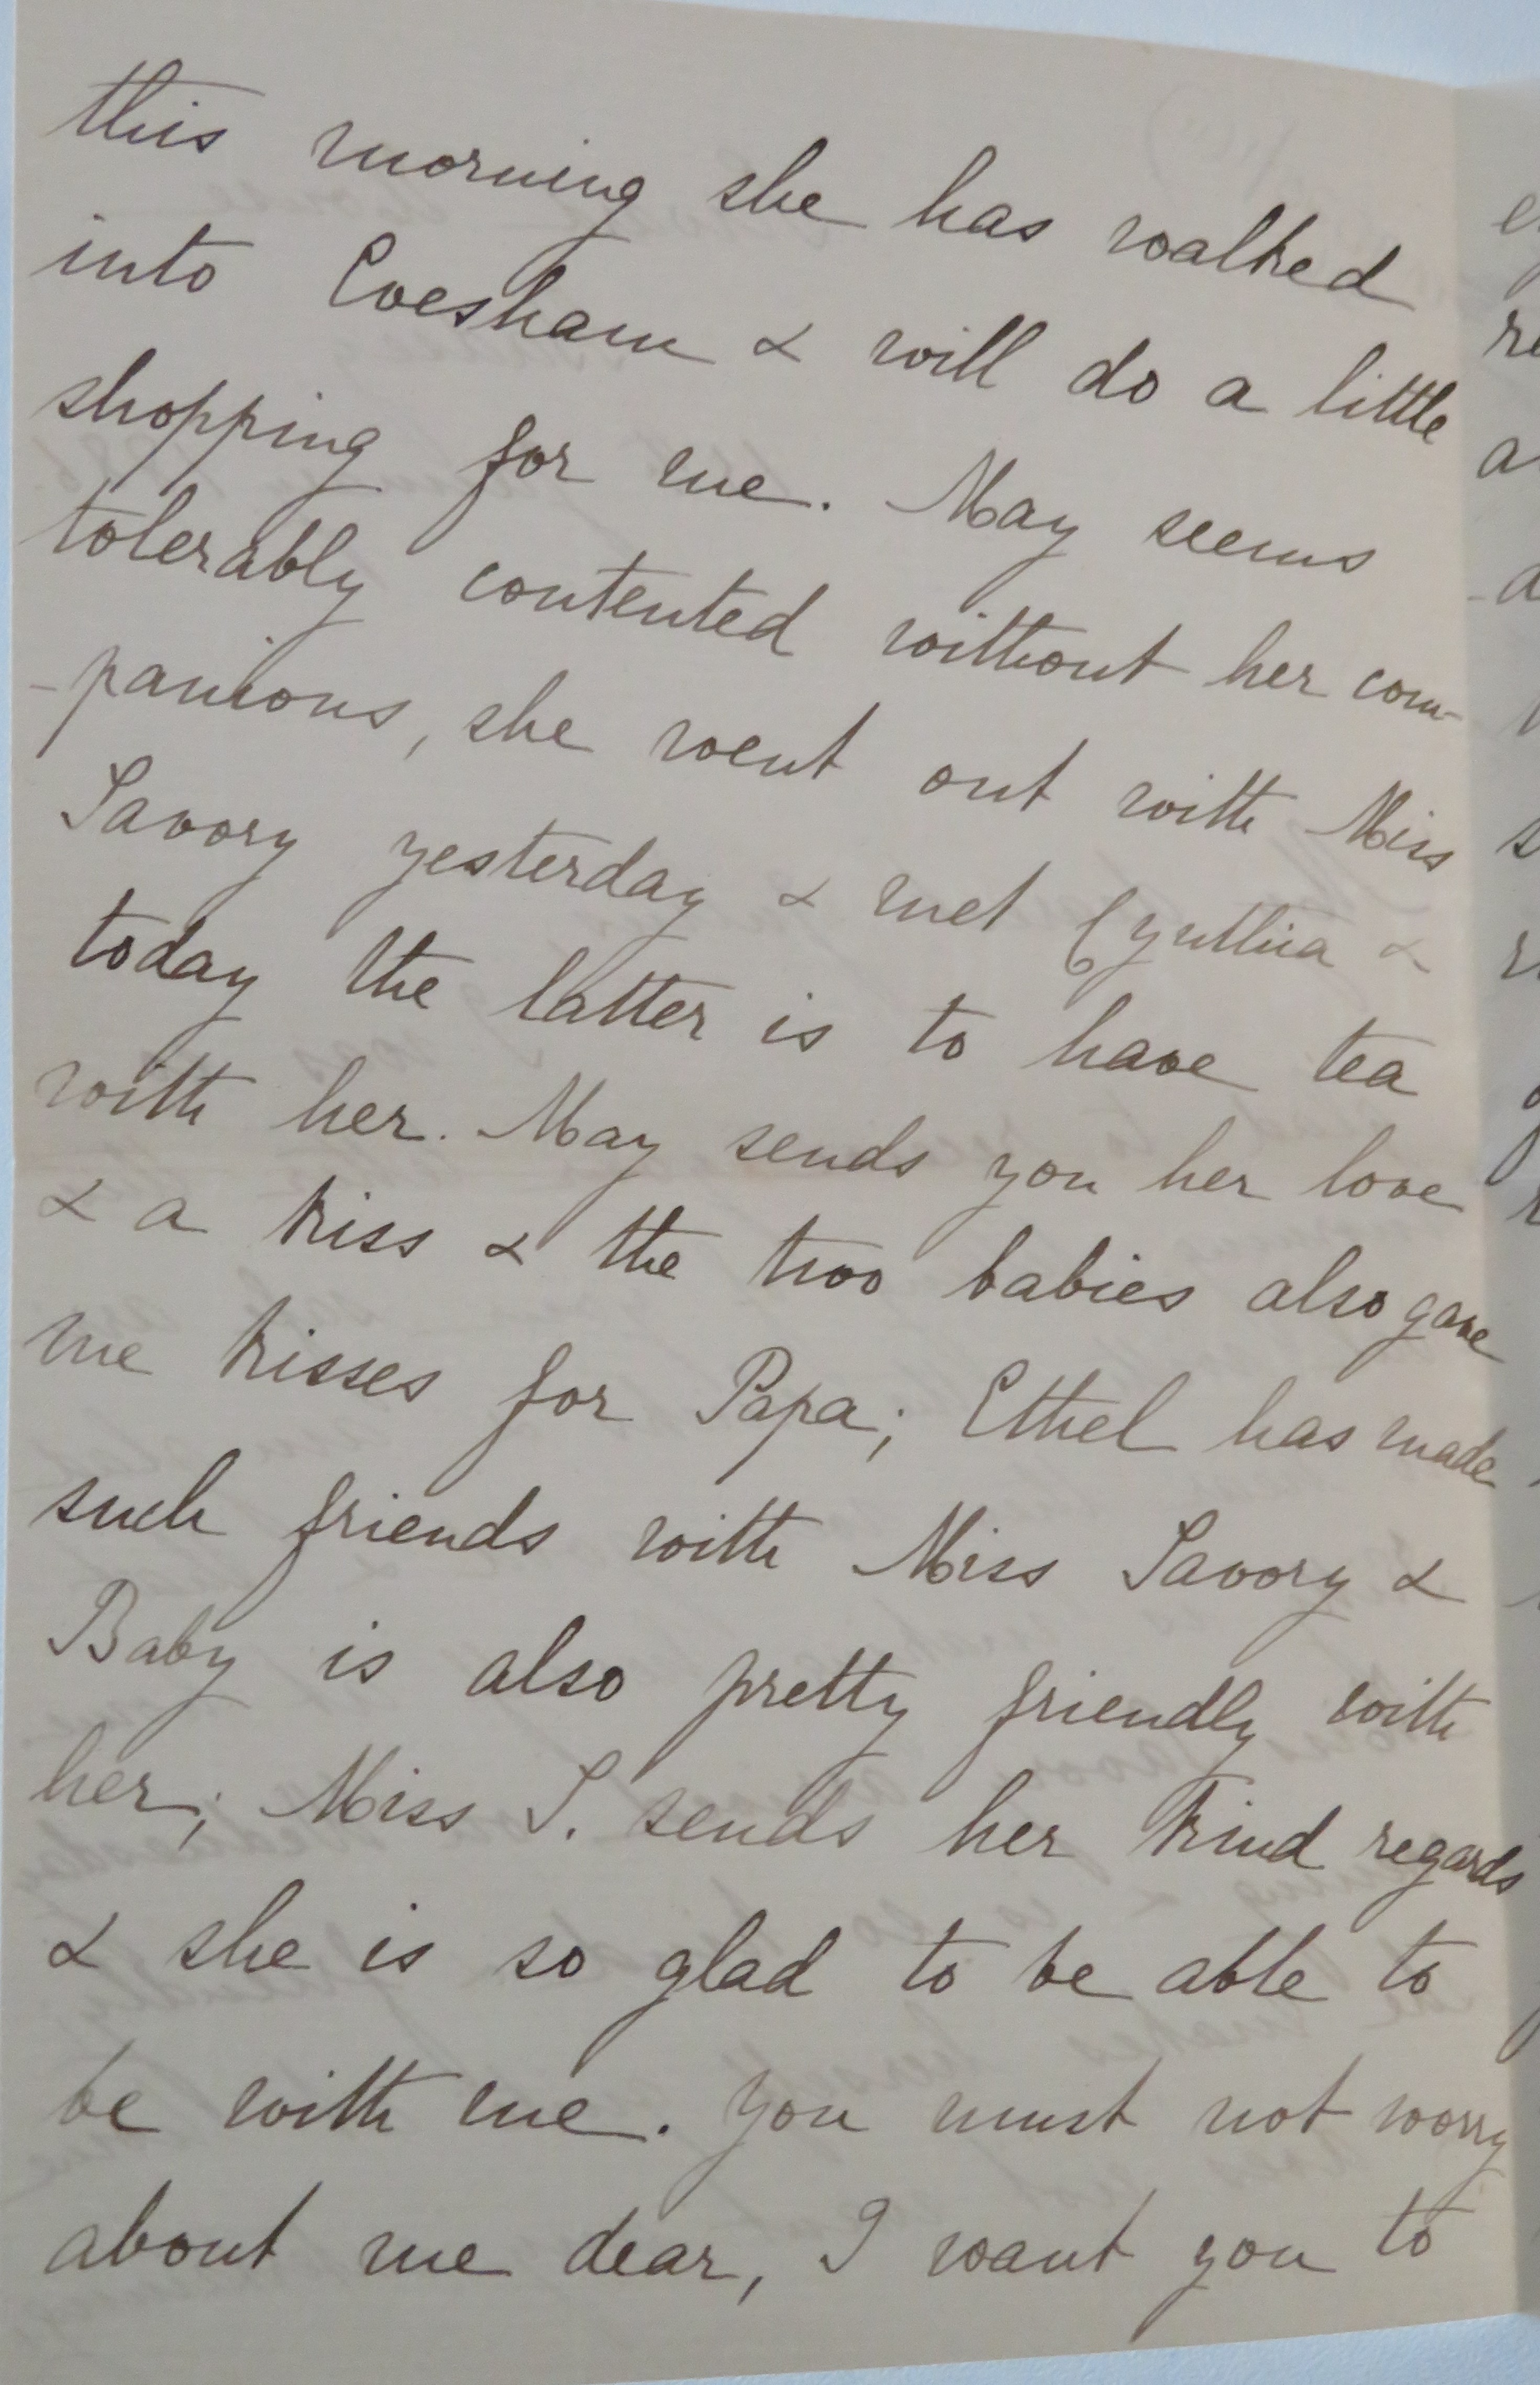 this morning she has walked
into Evesham & will do a little
shopping for me. May seems
tolerably contented without her com-
-panions, she went out with Miss
Savory yesterday & met Cynthia &
today the latter is to have tea
with her. May sends you her love
& a kiss & the two babies also gave
me kisses for Papa; Ethel has made
such friends with Miss Savory &
Baby is also pretty friendly with
her; Miss S. sends her kind regards
& she is so glad to be able to
be with me. You must not worry
about me dear, I want you to